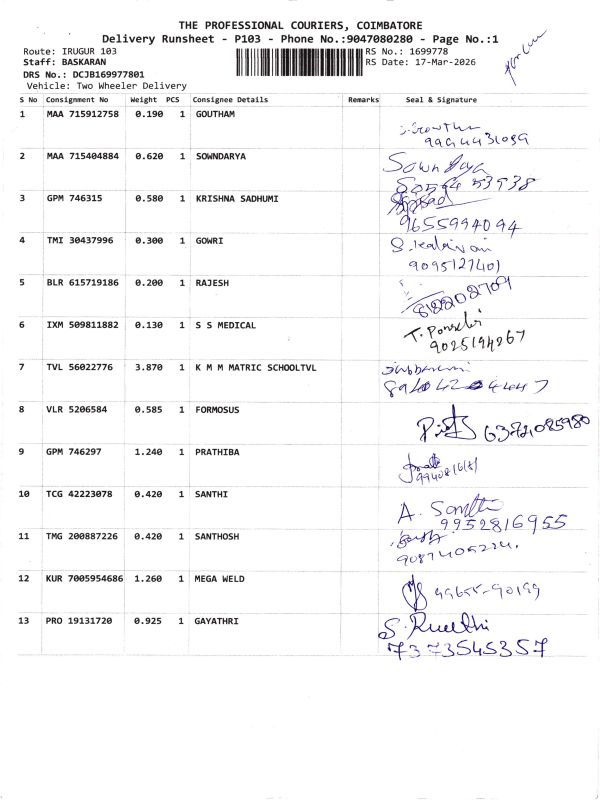 THE PROFESSIONAL COURIERS, COIMBATORE
Delivery Runsheet - P103 - Phone No.:9047080280 - Page No.:1
Route: IRUGUR 103
RS No.: 1699778
Staff: BASKARAN
RS Date: 17-Mar-2026
DRS No.: DCJB169977801
Vehicle: Two Wheeler Delivery
S No Consignment No Weight PCS Consignee Details Remarks Seal & Signature
1 MAA 715912758 0.190 1 GOUTHAM
9944431099
2 MAA 715404884 0.620 1 SOWNDARYA Sowndarya
3 GPM 746315 0.580 1 KRISHNA SADHUMI
9655994094
4 TMI 30437996 0.300 1 GOWRI S.
9095127401
5 BLR 615719186 0.200 1 RAJESH
812202709
6 IXM 509811882 0.130 1 S S MEDICAL T.
9025194267
7 TVL 56022776 3.870 1 K M M MATRIC SCHOOLTVL
8 VLR 5206584 0.585 1 FORMOSUS
9 GPM 746297 1.240 1 PRATHIBA
10 TCG 42223078 0.420 1 SANTHI A. Santhi
9952816955
11 TMG 200887226 0.420 1 SANTHOSH
12 KUR 7005954686 1.260 1 MEGA WELD 99655-90199
13 PRO 19131720 0.925 1 GAYATHRI S.
7373545357